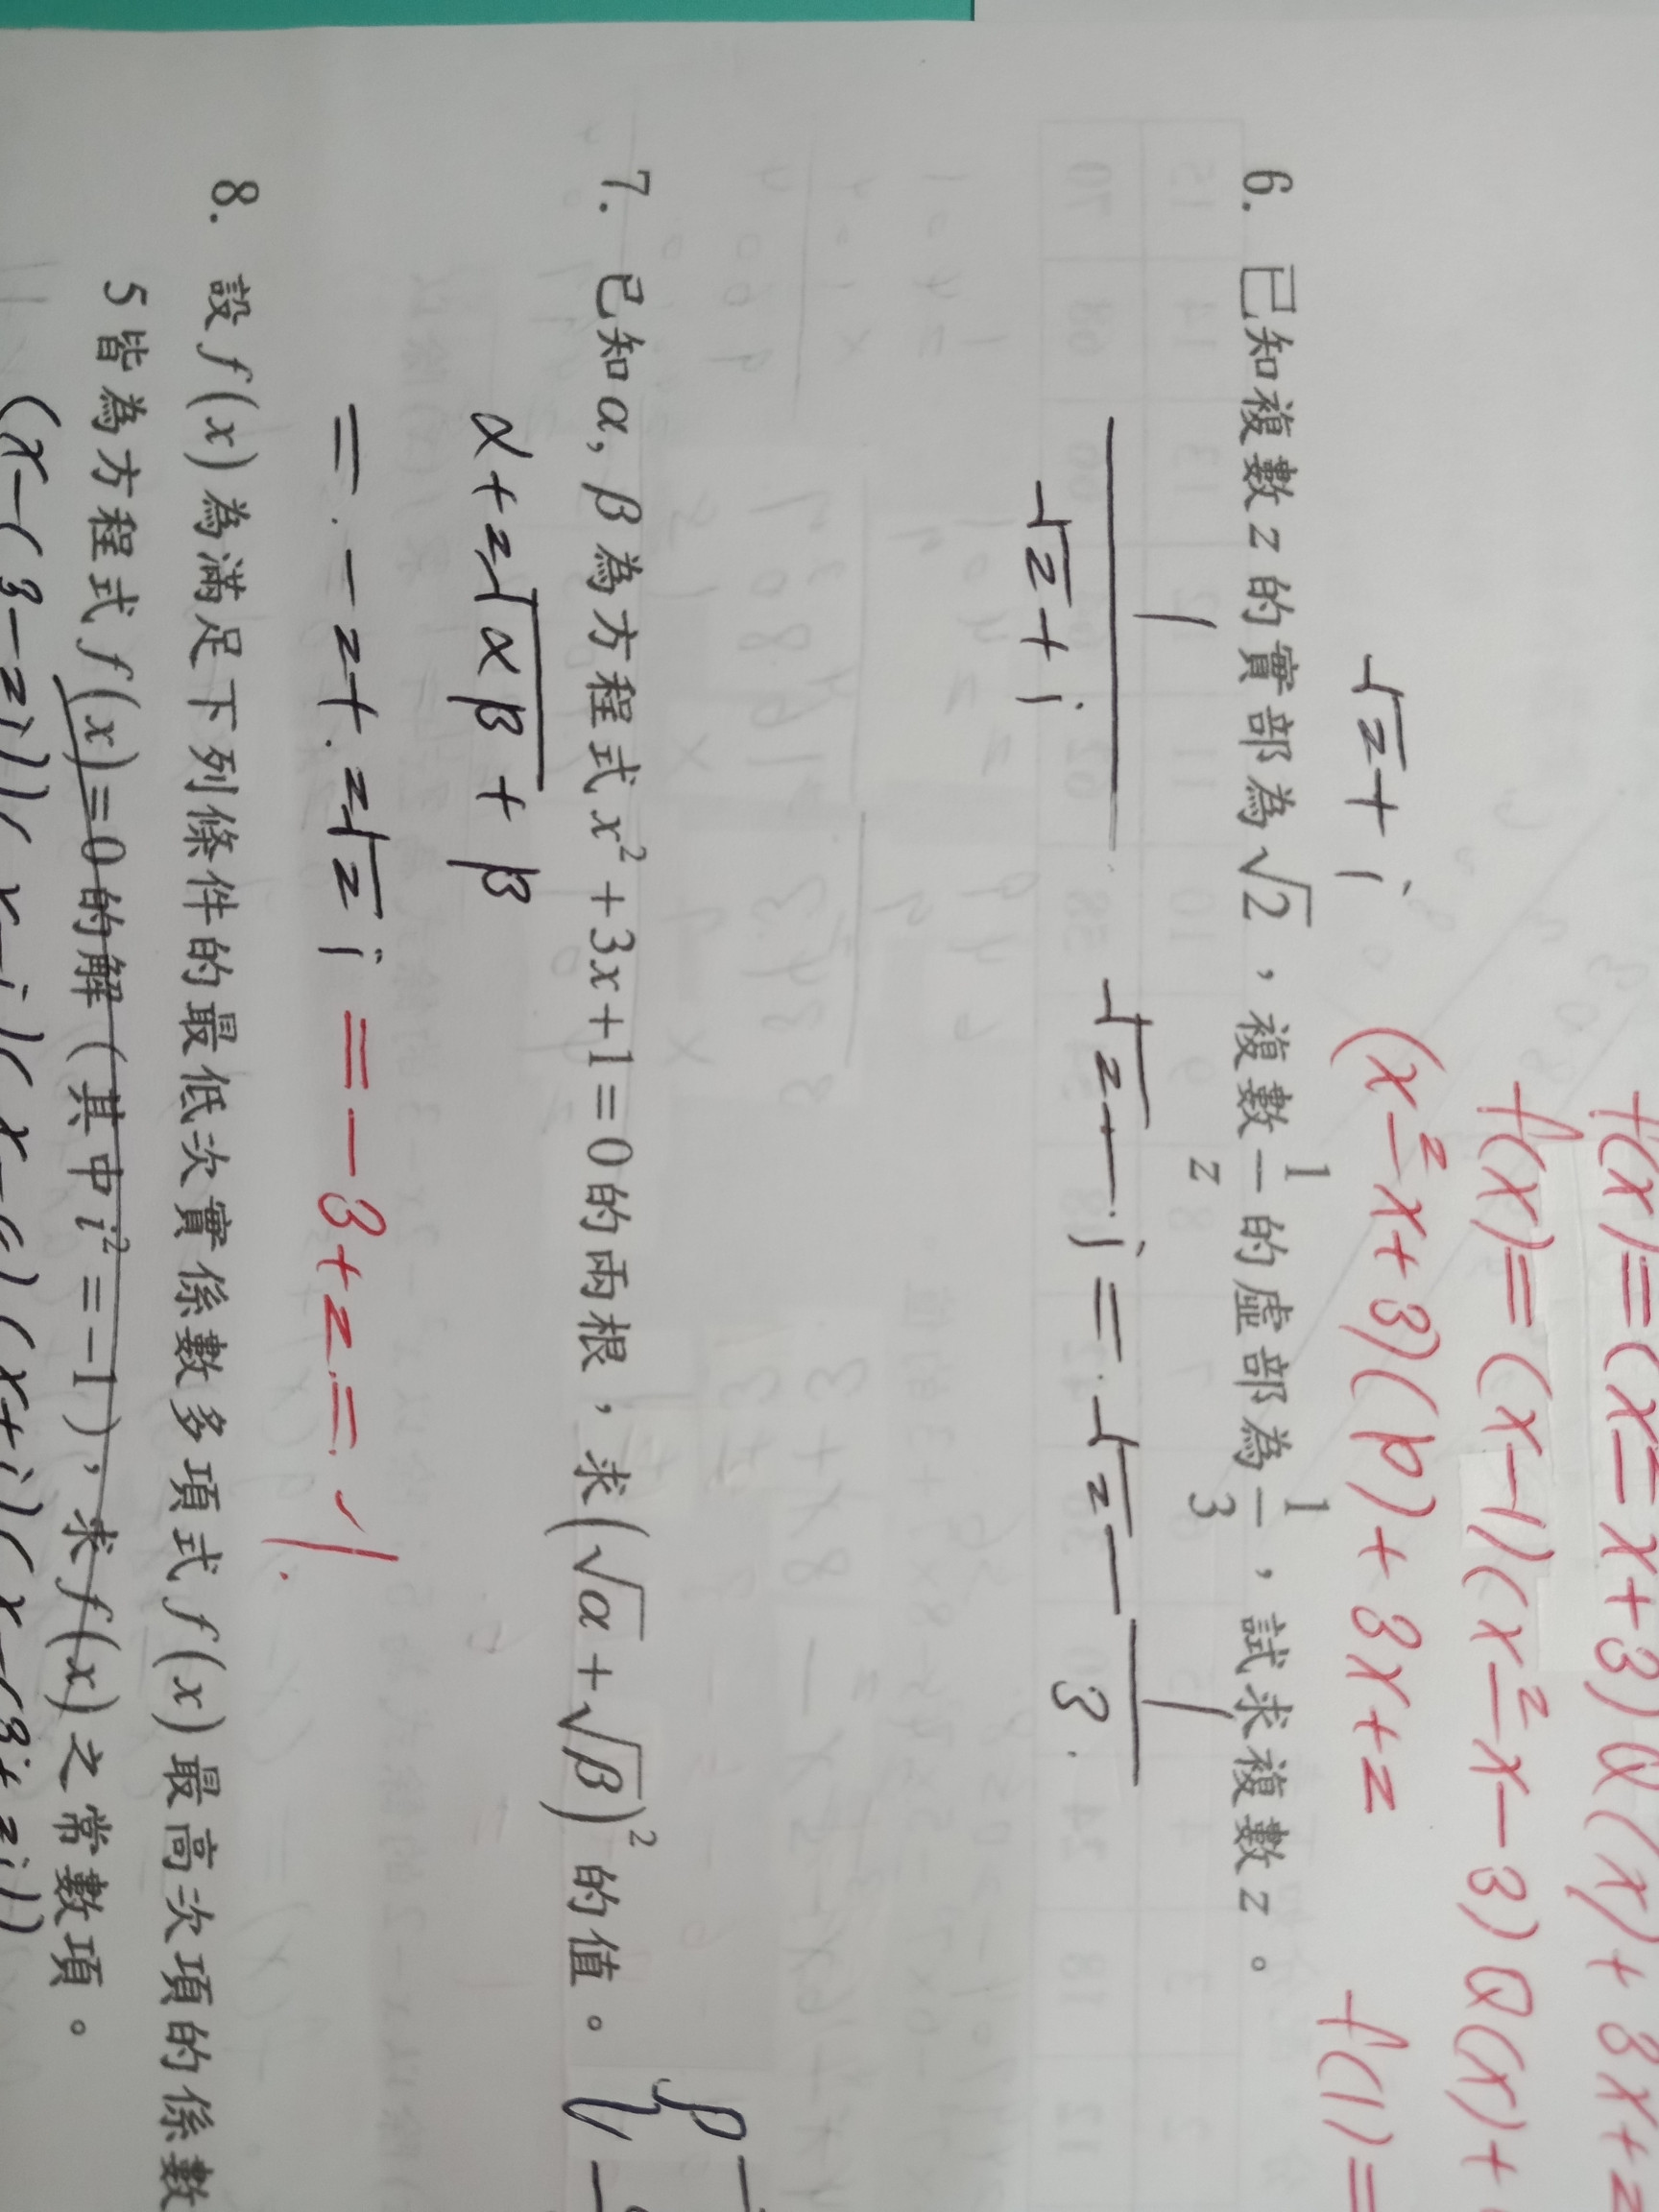 f(x)=(x²-x+3)Q(x)+3x+2
f(x)=(x-1)(x²-x-3)Q(x)+
√2+i (x²-x+3)(p)+3x+2 f(1)=
6. 已知複數z的實部為√2，複數1/z的虛部為1/3，試求複數z。
1/(√2+i) √2-i=√2-1/3
7. 已知α, β為方程式x²+3x+1=0的兩根，求(√α+√β)²的值。
α+2√αβ+β
=-2+2√2i=-3+2=-1
8. 設f(x)為滿足下列條件的最低次實係數多項式f(x)最高次項的係數
5皆為方程式f(x)=0的解(其中i²=-1)，求f(x)之常數項。